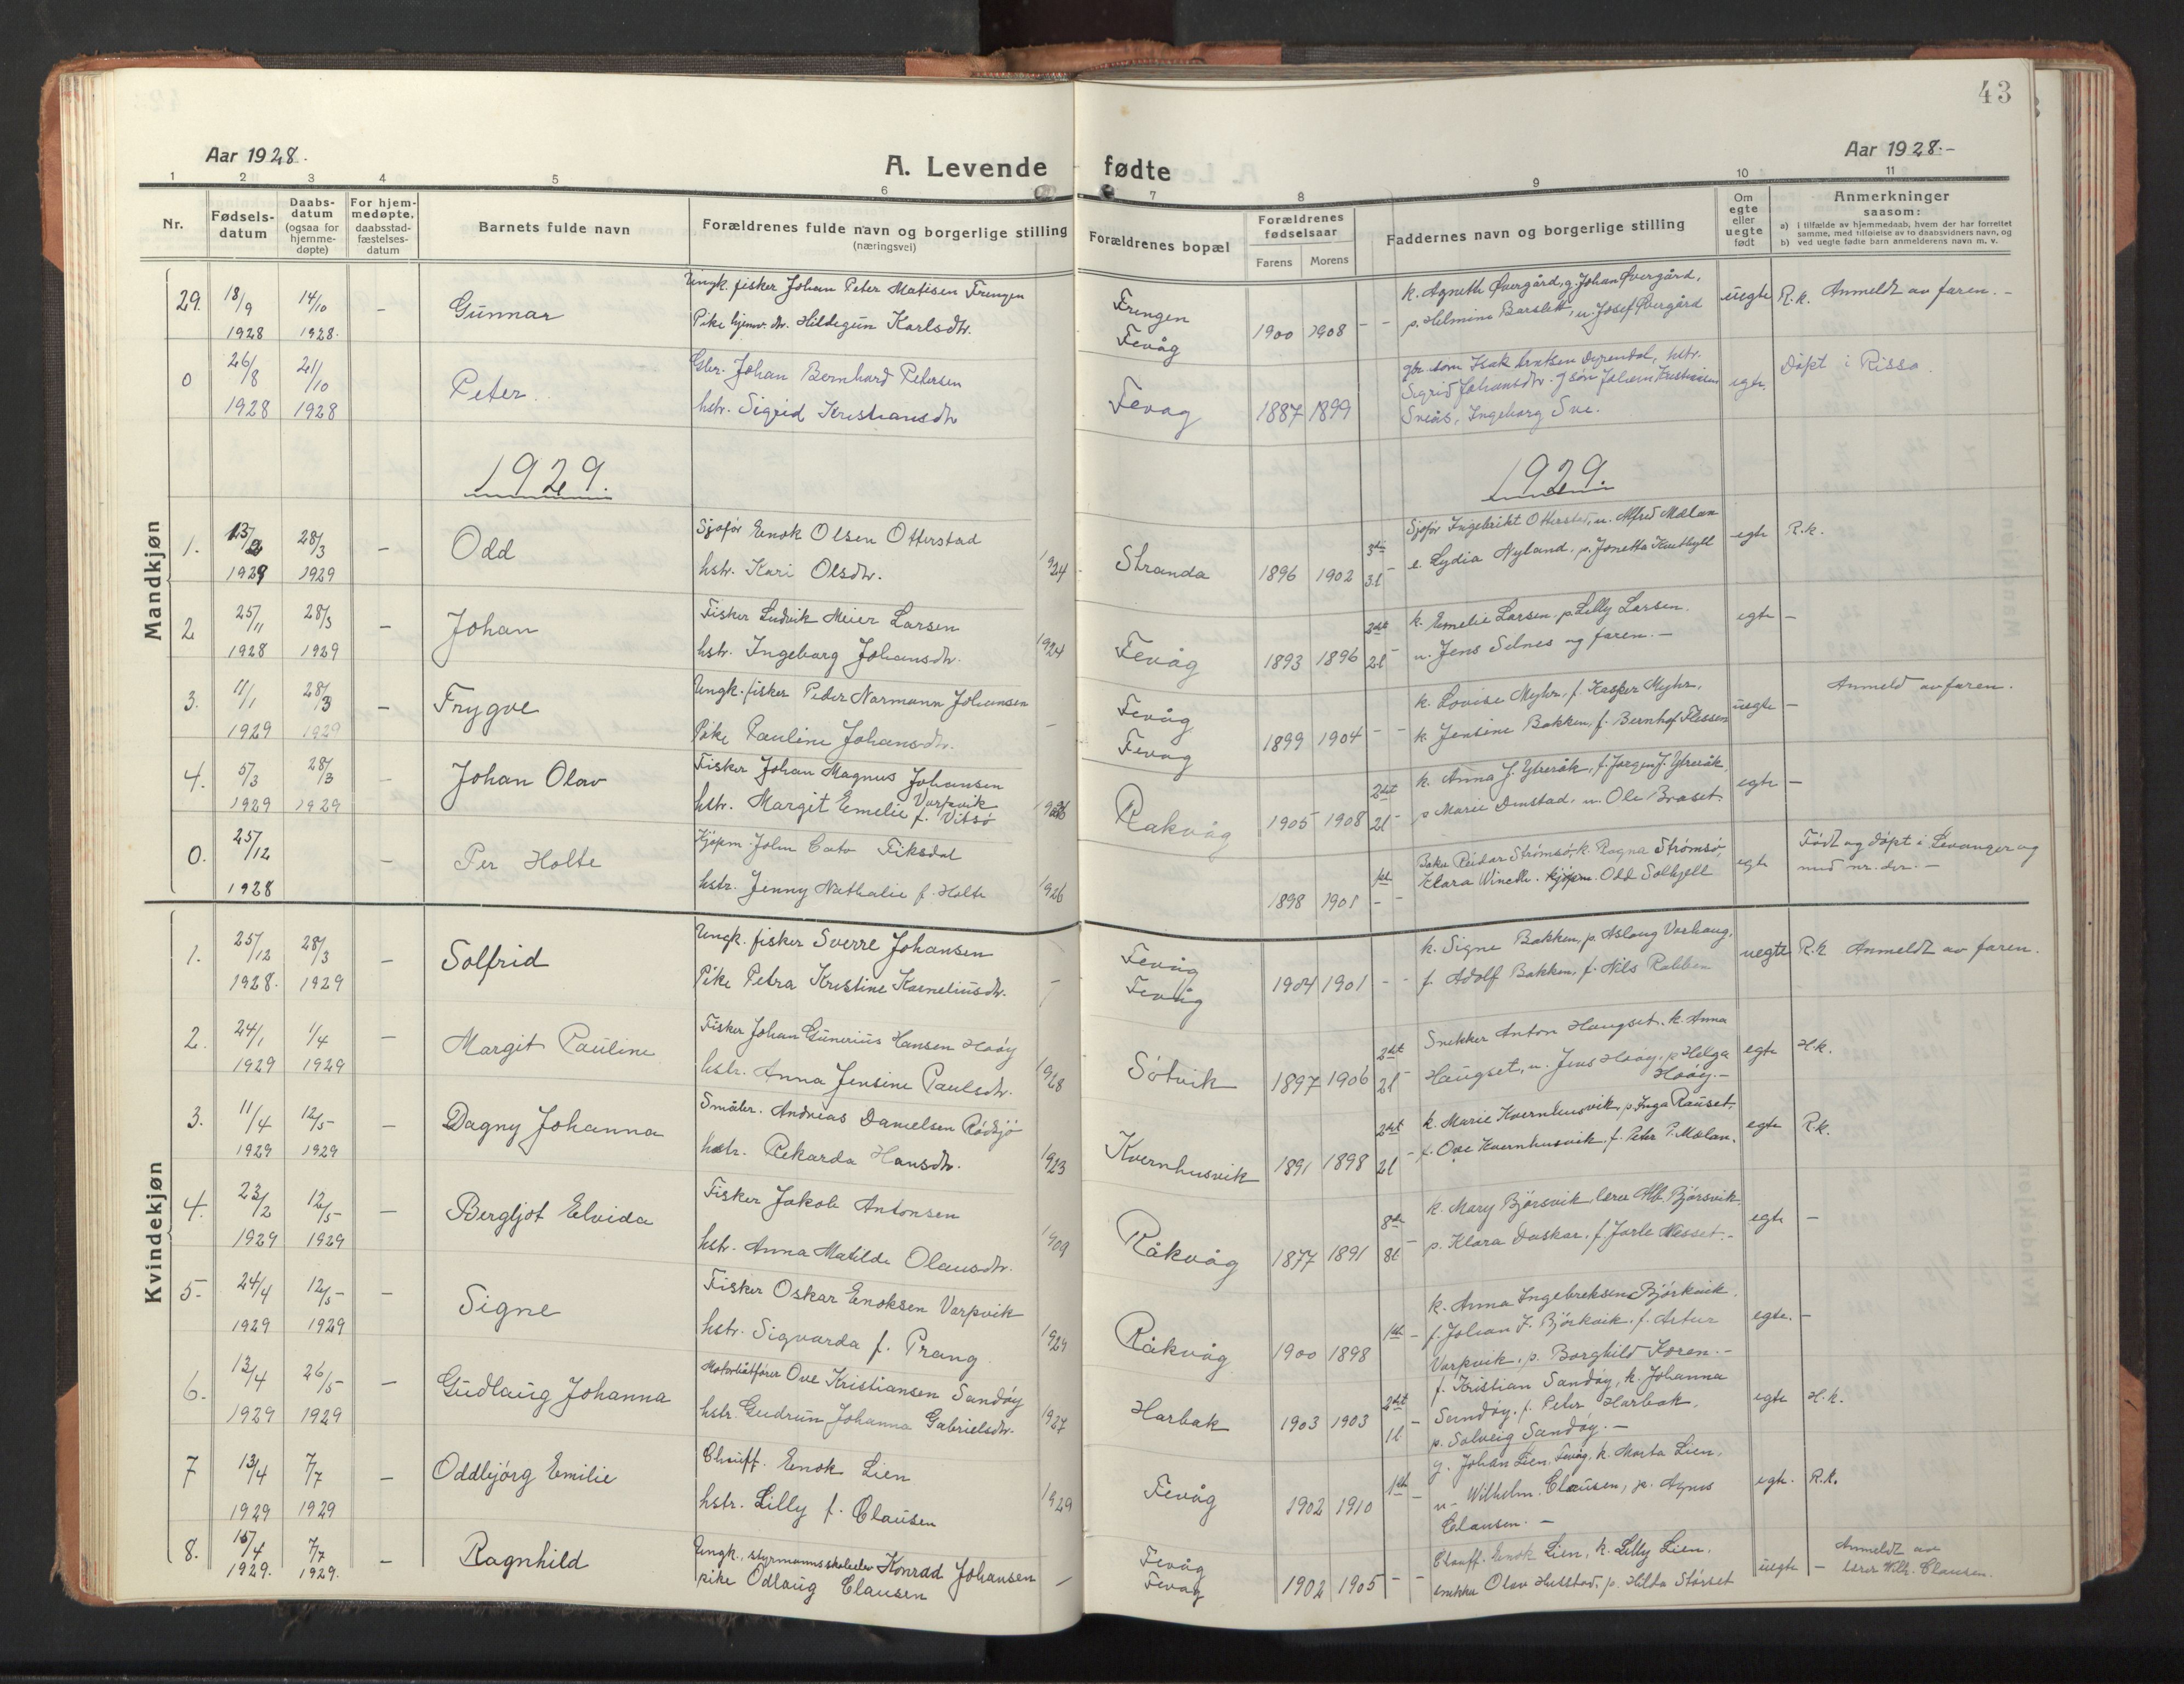 43
Aar 1928.
A. Levende fødte
Aar 1928.-
1 2 3 4 5 6 7 8 9 10 11
Nr.
Fødsels-
datum
Daabs-
datum
(ogsaa for
hjemme-
døpte)
For hjem-
medøpte,
daabsstad-
fæstelses-
datum
Barnets fulde navn
Forældrenes fulde navn og borgerlige stilling
(næringsvei)
Forældrenes bopæl
Forældrenes
fødselsaar
Farens Morens
Faddernes navn og borgerlige stilling
Om
egte
eller
uegte
født
Anmerkninger
saasom:
a) i tilfælde av hjemmedaab, hvem der har forrettet
samme, med tilføielse av to daabsvidners navn, og
b) ved uegte fødte barn anmelderens navn m. v.
Mandkjøn
29. 18/9 1928 14/10 1928. - Gunnar
Ungk. fisker Johan Peter Matisen Frengen
Pike hjemv. dr. Hildegun Karlsdtr.
Frengen
Fevåg
1900 1908 - -
k. Agneth Øvergård, g. Johan Øvergård,
p. Helmine Barslett, u. Josef Øvergård
uegte R.k. Anmeldt av faren. -
0 26/8 1928 21/10 1928 Peter
Gbr. Johan Bernhard Petersen
hstr. Sigrid Kristiansdtr
Fevåg 1887 1899
gbr. søn Isak Dyrendal, hstr.
Sigrid Johansdtr. g søn Johan Kristiansen
Sneås, Ingeborg Sve.
egte. Døpt i Rissa.
1929. 1929.
1. 13/2 1929 28/3 1929 - Odd
Sjåfør Enok Olsen Otterstad
hstr. Kari Olsdtr. 1924
Stranda 1896 1902 3die 3 l -
Sjåfør Ingebrikt Otterstad, u. Alfred Mælan
e. Lydia Nyland, p. Jonetta
egte R.k.
2 25/11 1928 28/3 1929 - Johan
Fisker Ludvik Meier Larsen
hstr. Ingeborg Johansdtr. 1924
Fevåg 1893 1896 2det 2 l -
k. Emelie Larsen, p. Lilly Larsen.
u. Jens Selnes og faren. -
egte -
3. 11/1 1929 28/3 1929 - Trygve
Ungk. fisker Peder Normann Johansen
Pike Pauline Johansdtr. -
Fevåg
Fevåg
1899 1904 - -
k. Lovise Myhr, f. Kasper Myhr,
k. Jensine Bakken, f. Bernhof Flessen
uegte - Anmeld av faren.
4. 5/3 1929 28/3 1929 - Johan Olav
Fisker Johan Magnus Johansen
Varpvik
hstr. Margit Emelie f. Vitsø
Råkvåg 1905 1908 2det 2 l -
k. Anna J. Ytreråk, f. Jørgen J. Ytreråk,
p Marie Dunstad, u. Ole Braset.
egte -
0. 25/12 1928 - Per Holte
Kjøpm. John Cato Fiksdal
hstr. Jenny Nathalie f. Holte 1926
1898 1901 1st - -
Reidar Strømsø, k. Ragna Strømsø,
Klara Kjøpm. Odd Solhjell
egte Født og døpt i Levanger og
med nr. der. -
Kvindekjøn
1. 25/12 1928. 28/3 1929 - Solfrid
Ungk. fisker Sverre Johansen
Pike Petra Kristine Korneliusdtr. -
Fevåg
Fevåg
1904 1901 - -
k. Signe Bakken, p. Aslaug Varhaug,
f. Adolf Bakken, f. Nils Rabben
uegte R.k Anmeldt av faren.
2. 24/1 1929 1/4 1929 - Margit Pauline
Fisker Johan Gunerius Hansen Hoøy
hstr. Anna Jensine Paulsdtr. 1928
Sötvik 1897 1906 2det 2 l -
Snekker Anton Haugset, k. Anna
Haugset, u. Jens Hoøy, p Helga
Hoøy. -
egte H.k.
3. 11/4 1929 12/5 1929 - Dagny Johanna
Småbr. Andreas Danielsen Rödsjø
hstr. Rikarda Hansdtr. 1923
Kvernhusvik 1891 1898 2det 2 l -
k. Marie Kvernhusvik, p. Inga Rauset,
f. Ove Kvernhusvik. f. Peter P. Mælan.
egte R.k.
4. 23/2 1929 12/5- 1929 - Bergljot Elvida
Fisker Jakob Antonsen
hstr. Anna Matilde Olausdtr. 1909
Råkvåg 1877 1891 8de 8 l -
k. Mary Bjørsvik, lærer Alb. Bjørsvik.
p. Klara Daskar, f. Jarle Nesset. -
egte -
5- 24/4 1929 12/5- 1929 - Signe
Fisker Oskar Enoksen Varpvik
hstr. Sigvarda f. Prang 1929
Råkvåg 1900 1898 1ste -
k. Anna Ingebreksen Bjørkvik.
f. Johan I. Bjørkvik. f. Artur
Varpvik, p. Borghild Koren. -
egte. -
6. 13/4 1929 26/5- 1929 - Gudlaug Johanna
Motorbåtfører Ove Kristiansen Sandøy
hstr. Gudrun Johanna Gabrielsdtr. 1927
Harbak 1903 1903 2det 1 l -
f. Kristian Sandøy, k. Johanna
Sandøy, f. Peter Harbak,
p. Solveig Sandøy. -
egte H.k.
7 13/4 1929 7/7 1929 - Oddbjørg Emilie
Chauff. Enok Lien
hstr. Lilly f. Clausen 1929
Fevåg 1902 1910 1ste -
g. Johan Lien, Fevåg, k. Marta Lien,
u - Wilhelm Clausen, p. Agnes
Clausen. -
egte. R.k.
8. 15/4 1929. 7/7 1929. - Ragnhild
Ungk., styrmannsskoleelev Konrad Johansen
pike Odlaug Clausen -
Fevåg
Fevåg
1902 1905 - -
Chauff. Enok Lien, k. Lilly Lien,
snekker Olav Husstad, p. Hilda Størset
uegte - Anmeldt av
lærer Wilh. Clausen.